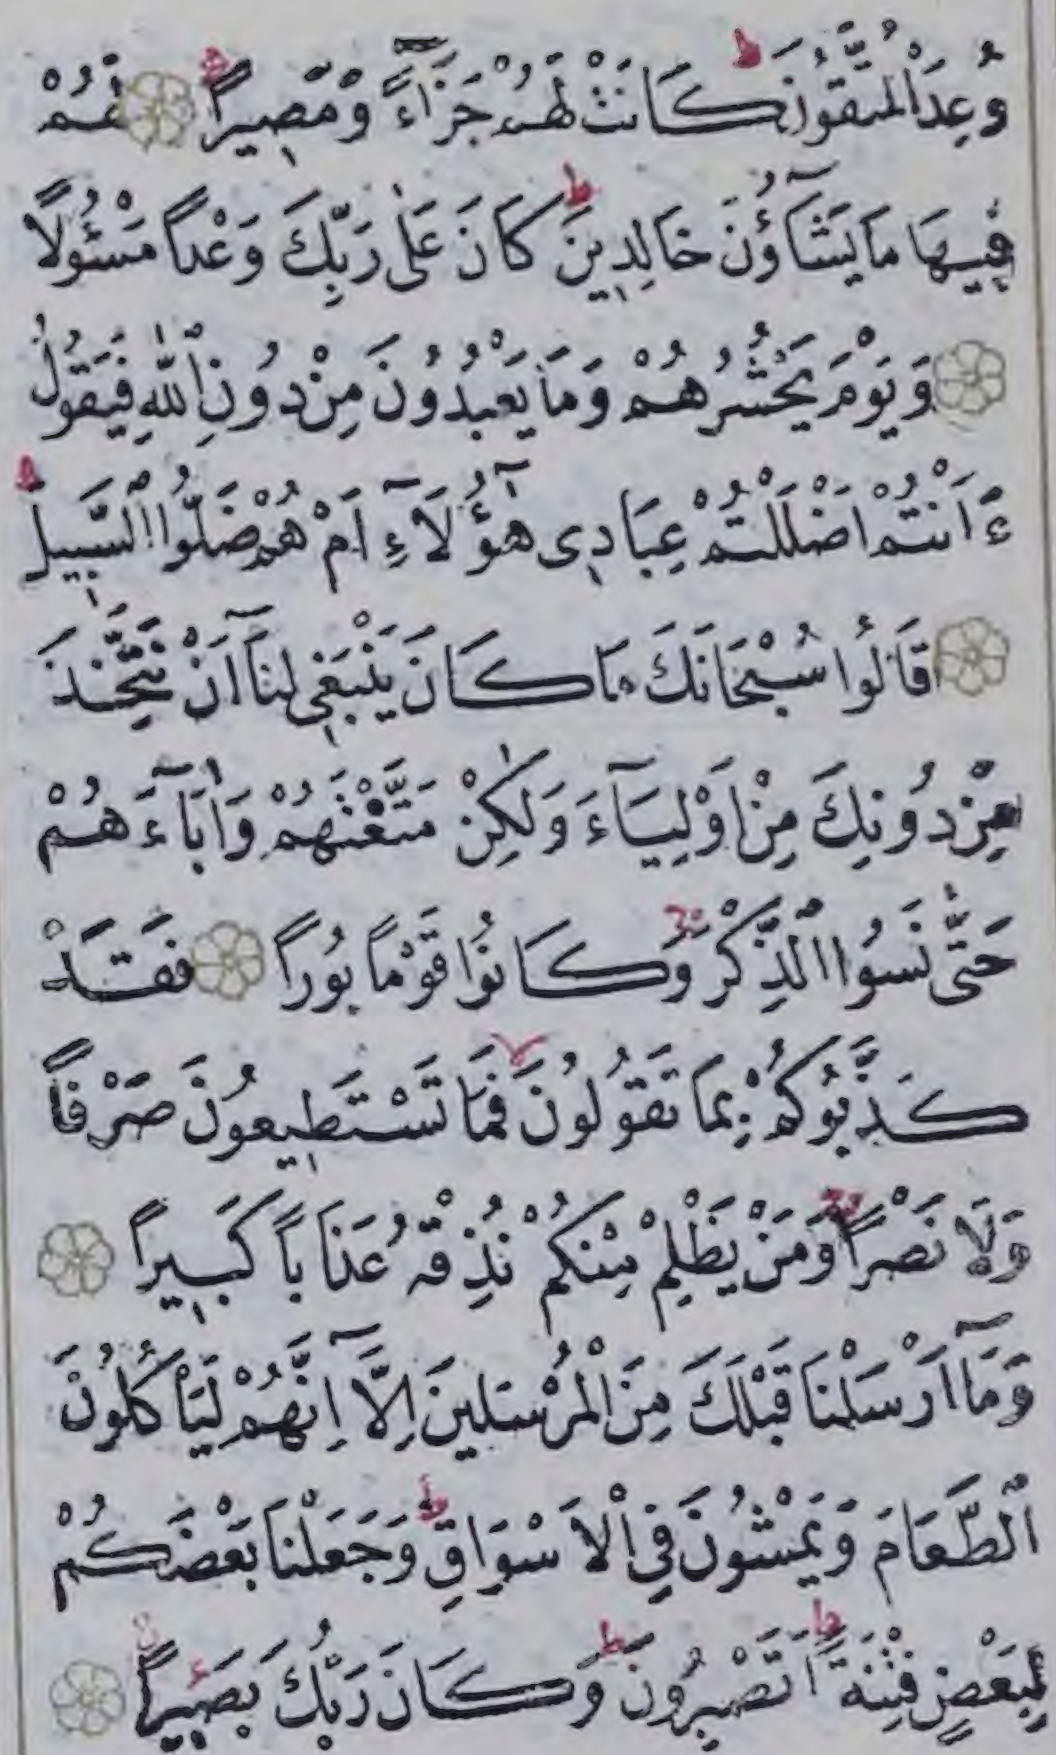 وُعِدَ الْمُتَّقُونَ ط كَانَتْ لَهُمْ جَزَٓاءً وَمَصِيرًا لَهُمْ
فِيهَا مَا يَشَٓاؤُنَ خَالِدِينَ ط كَانَ عَلٰى رَبِّكَ وَعْدًا مَسْئُولًا
وَيَوْمَ يَحْشُرُهُمْ وَمَا يَعْبُدُونَ مِنْ دُونِ اللّٰهِ فَيَقُولُ
ءَاَنْتُمْ اَضْلَلْتُمْ عِبَادِى هٰٓؤُلَٓاءِ اَمْ هُمْ ضَلُّوا السَّبِيلَ
قَالُوا سُبْحَانَكَ مَا كَانَ يَنْبَغِى لَنَٓا اَنْ نَتَّخِذَ
مِنْ دُونِكَ مِنْ اَوْلِيَٓاءَ وَلٰكِنْ مَتَّعْتَهُمْ وَاٰبَٓاءَهُمْ
حَتّٰى نَسُوا الذِّكْرَ وَكَانُوا قَوْمًا بُورًا فَقَدْ
كَذَّبُوكُمْ بِمَا تَقُولُونَ فَمَا تَسْتَطِيعُونَ صَرْفًا
وَلَا نَصْرًا وَمَنْ يَظْلِمْ مِنْكُمْ نُذِقْهُ عَذَابًا كَبِيرًا
وَمَٓا اَرْسَلْنَا قَبْلَكَ مِنَ الْمُرْسَلِينَ اِلَّٓا اِنَّهُمْ لَيَأْكُلُونَ
الطَّعَامَ وَيَمْشُونَ فِى الْاَسْوَاقِ ط وَجَعَلْنَا بَعْضَكُمْ
لِبَعْضٍ فِتْنَةً ط اَتَصْبِرُونَ ط وَكَانَ رَبُّكَ بَصِيرًا